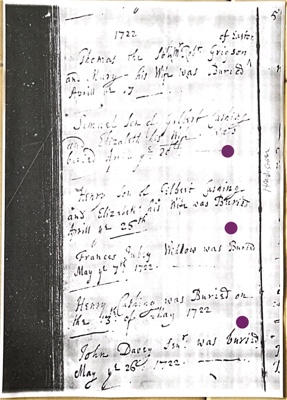 1722 of Easter
Thomas the Son of Robt Grieson
and Mary his Wife was Buried
Aprill ye 17
Samuel Son of Gilbert Cushing
and Elizabeth his Wife was
buried Aprill ye 20th
Henry Son of Gilbert Cushing
and Elizabeth his Wife was Buried
Aprill ye 25th
Frances Widdow was Buried
May ye 7th 1722
Henry Cushing was Buried on
the 13th of May 1722
John Dacey Senr was buried
May ye 26th 1722